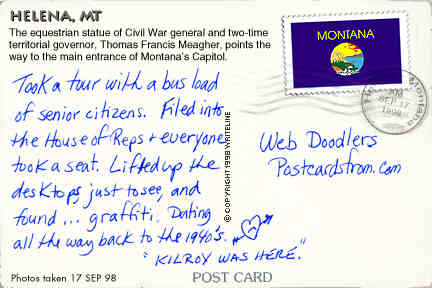 HELENA, MT
The equestrian statue of Civil War general and two-time
territorial governor, Thomas Francis Meagher, points the
way to the main entrance of Montana's Capitol.
Took a tour with a bus load
of senior citizens. Filed into
the House of Reps + everyone
took a seat. Lifted up the
desktops just to see, and
found ... graffiti. Dating
all the way back to the 1940's.
"KILROY WAS HERE."
Photos taken 17 SEP 98
© COPYRIGHT 1998 WRITELINE
MONTANA
SEP 17
1998
Web Doodlers
Postcardsfrom.com
POST CARD